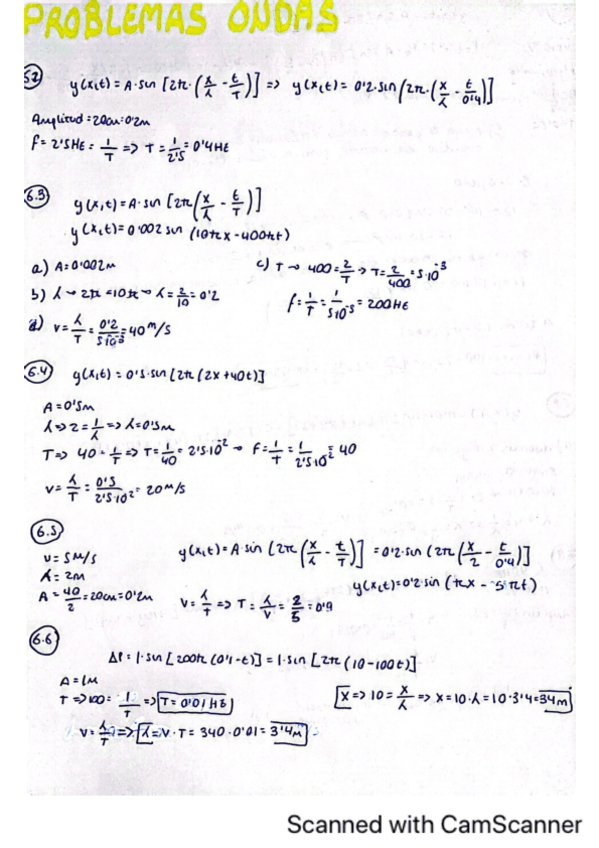 PROBLEMAS ONDAS
6.2 y(x,t) = A·sen [2π·(x/λ - t/T)] => y(x,t) = 0'2·sen [2π·(x/λ - t/0'4)]
Amplitud = 20cm = 0'2m
f = 2'5HE = 1/T => T = 1/2'5 = 0'4HE
6.3 y(x,t) = A·sen [2π(x/λ - t/T)]
y(x,t) = 0'002 sen (10πx - 400πt)
a) A = 0'002m
b) λ → 2π = 10π → λ = 2/10 = 0'2
c) T → 400 = 2/T → T = 2/400 = 5·10⁻³
f = 1/T = 1/5·10⁻³ = 200HE
d) v = λ/T = 0'2/5·10⁻³ = 40 m/s
6.4 y(x,t) = 0'5·sen [2π(2x + 40t)]
A = 0'5m
λ => 2 = 1/λ => λ = 0'5m
T => 40 = 1/T => T = 1/40 = 2'5·10⁻² → f = 1/T = 1/2'5·10⁻² = 40
v = λ/T = 0'5/2'5·10⁻² = 20m/s
6.5
v = 5m/s
λ = 2m
A = 40/2 = 20cm = 0'2m
y(x,t) = A·sin [2π(x/λ - t/T)] = 0'2·sin (2π(x/2 - t/0'4)]
y(x,t) = 0'2·sin (πx - 5πt)
v = λ/T => T = λ/v = 2/5 = 0'9
6.6
ΔP = 1·sen [200π(0'1-t)] = 1·sin [2π(10-100t)]
A = 1m
T => 100 = 1/T => T = 0'01HE
x => 10 = x/λ => x = 10·λ = 10·3'4 = 34m
v = λ/T => λ = v·T = 340·0'01 = 3'4m
Scanned with CamScanner